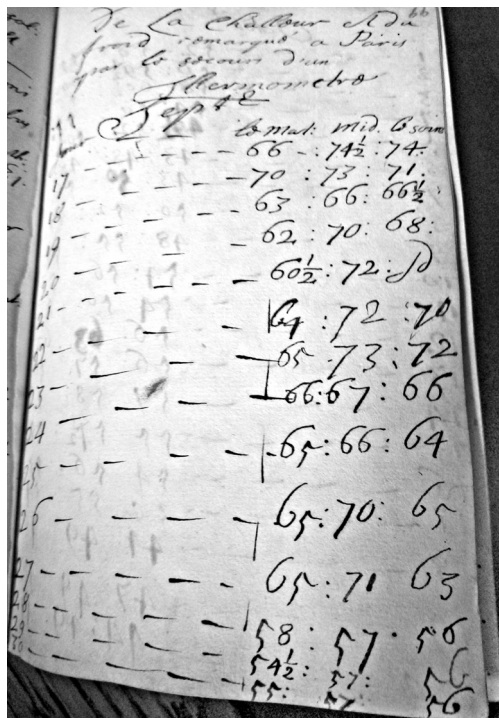 De La Challour Et du
froid remarqué a Paris
par le secours d'un
Thermometre
Sept
le mat: mid. le soir
66 : 74½ : 74:
17 70 : 73 : 71:
18 63 : 66: 66½:
19 62 : 70: 68:
20 60½ : 72:
21 64 : 72 : 70
22 65 : 73 : 72
23 66: 67 : 66
24 65 : 66: 64
25 65: 70: 65
26 65: 71 63
27 58 : 57 · 56
54½: 57:
55: 57: 56